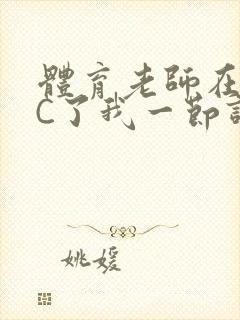 體育老師在
C了我一節
姚媛